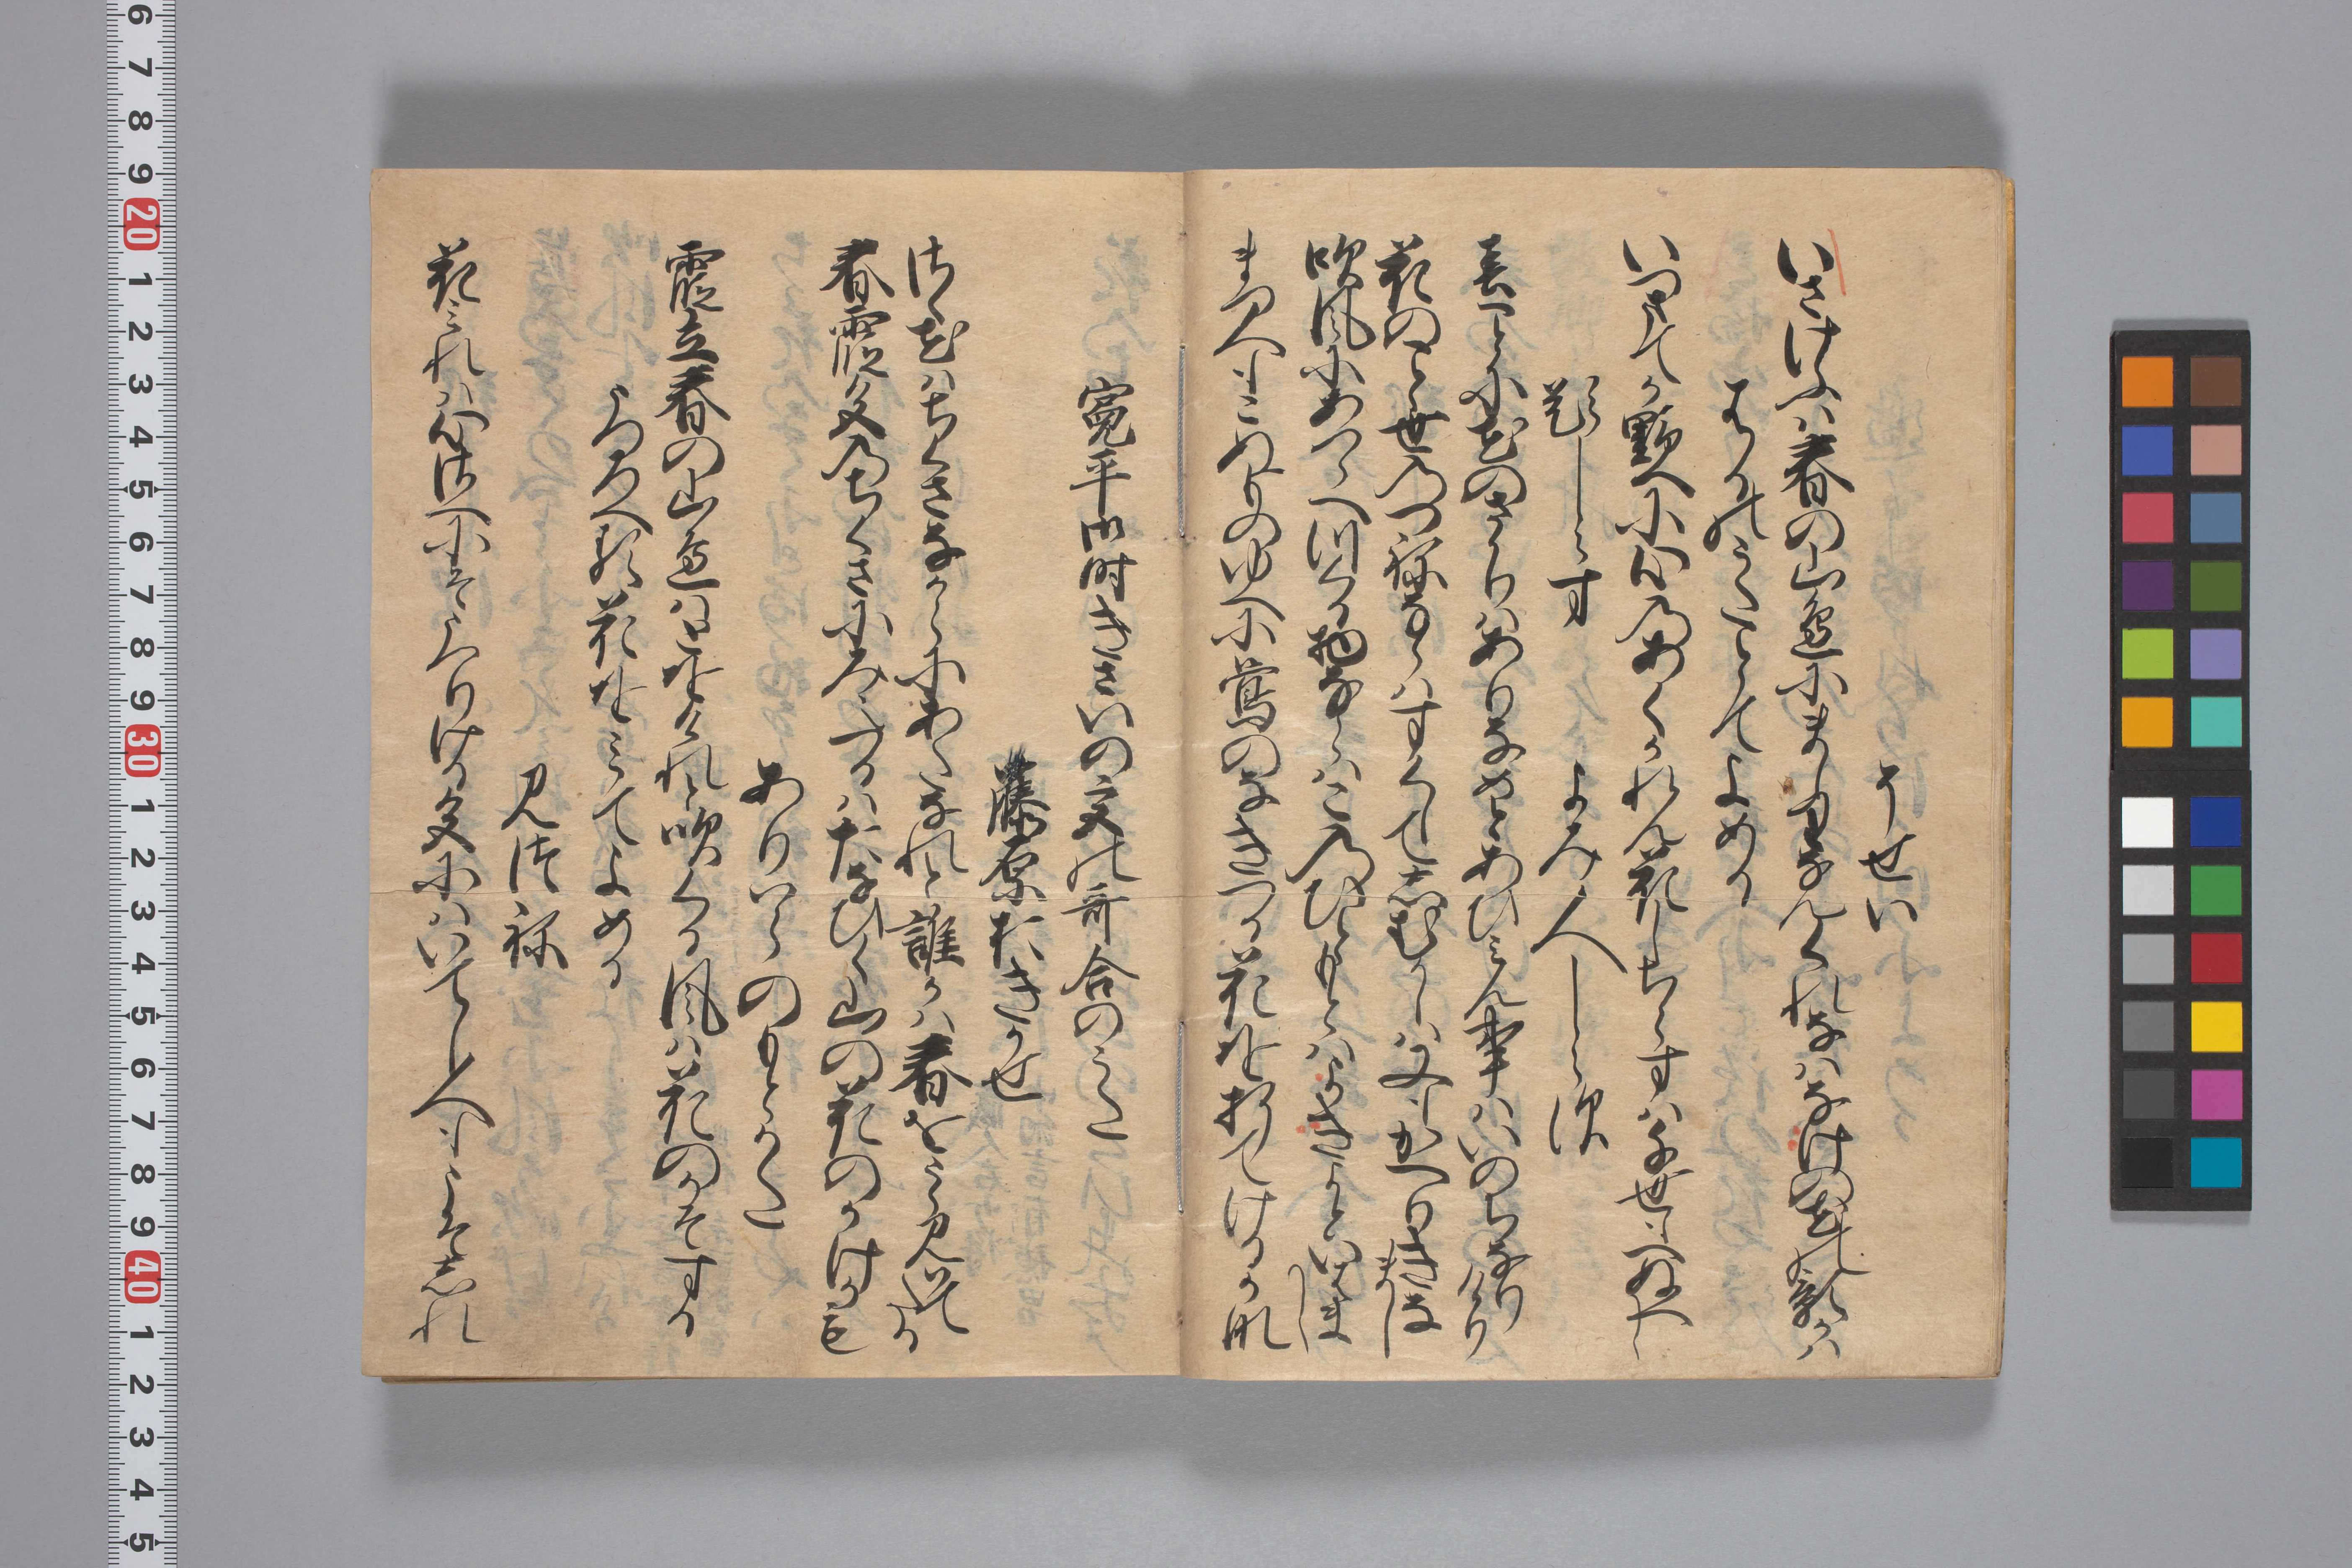 そせい
いさけふは春の山邊にましりなんくれなはなけの花の影かは
はるのうたとてよめる
いつまてか野へに心のあくかれん花しちらすは千世もへぬへし
題しらす　よみ人しらす
春ことに花のさかりはありなめとあひみん事はいのちなりけり
花のこと世のつねならはすくしてしむかしは又もかへりきなまし
吹風にあつらへつくる物ならはこのひともとはよきよといはまし
まつ人もこぬものゆへに鶯のなきつる花をおりてけるかな
寛平御時きさいの宮の哥合のうた
藤原おきかせ
さく花はちくさなからにあたなれと誰かは春をうらみはてたる
春霞色のちくさにみえつるはたなひく山の花のかけかも
ありはらのもとかた
霞立春の山邊はとをけれと吹くる風は花のかそする
うつろへる花をみてよめる
見つね
花みれは心さへにそうつりける色にはいてし人もこそしれ